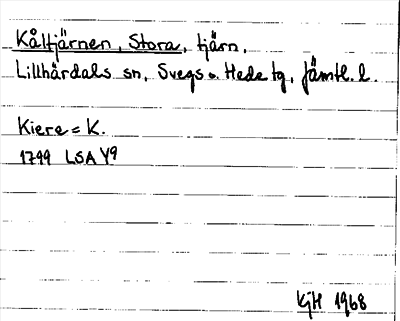 Kåltjärnen, Stora, tjärn.
Lillhärdals sn, Svegs o. Hede tg, Jämtl. l.
Kiere = K.
1799 LSA Y9
KjH 1968